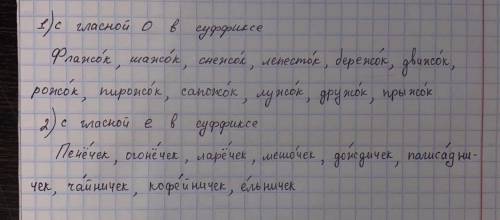 1) с гласной О в суффиксе
Флажо́к, шажо́к, снежо́к, лепесто́к, бережо́к, движо́к,
рожо́к, пирожо́к, сапожо́к, лужо́к, дружо́к, прыжо́к
2) с гласной е в суффиксе
Пенёчек, огонёчек, ларёчек, мешо́чек, до́ждичек, палиса́дни-
чек, ча́йничек, кофе́йничек, е́льничек